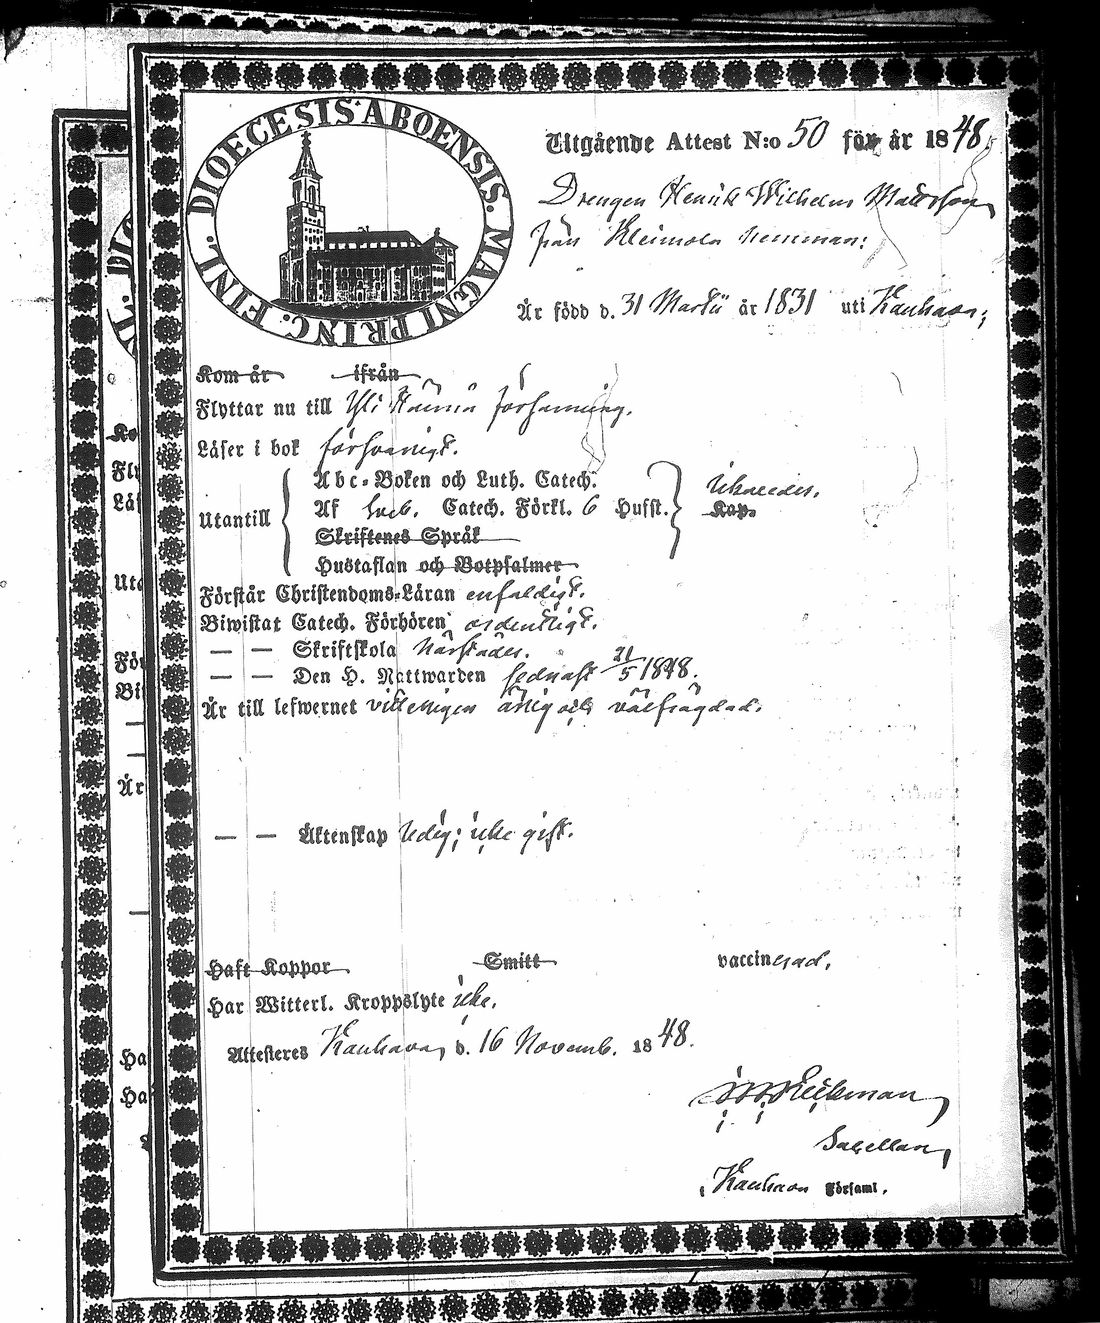 DIOECESIS ABOENSIS. MAGNI PRINC. FINL.
Utgående Attest N:o 50 för år 1848.
Drengen Henrik Wilhelm Mattsson
från Kleimola hemman;
Är född d. 31 Martii år 1831 uti Kauhava;
Kom år ifrån
Flyttar nu till församling.
Läser i bok försvarligt.
Utantill
Abc-Boken och Luth. Catech.
Af Sveb. Catech. Förkl. 6 Hufst. Kap.
Skriftenes Språk
Hustaflan och Botpsalmer
Förstår Christendoms-Läran enfaldigt.
Biwistat Catech. Förhören ordentligt.
— — Skriftskola
— — Den H. Nattwarden sednast 21/5 1848.
Är till lefwernet ärlig och välfrägdad.
— — Äktenskap ledig; icke gift.
Haft Koppor Smitt vaccinerad.
Har Witterl. Kroppslyte icke.
Attesteres Kauhava, d. 16 Novemb. 1848.
Sacellan,
i Kauhava Församl.